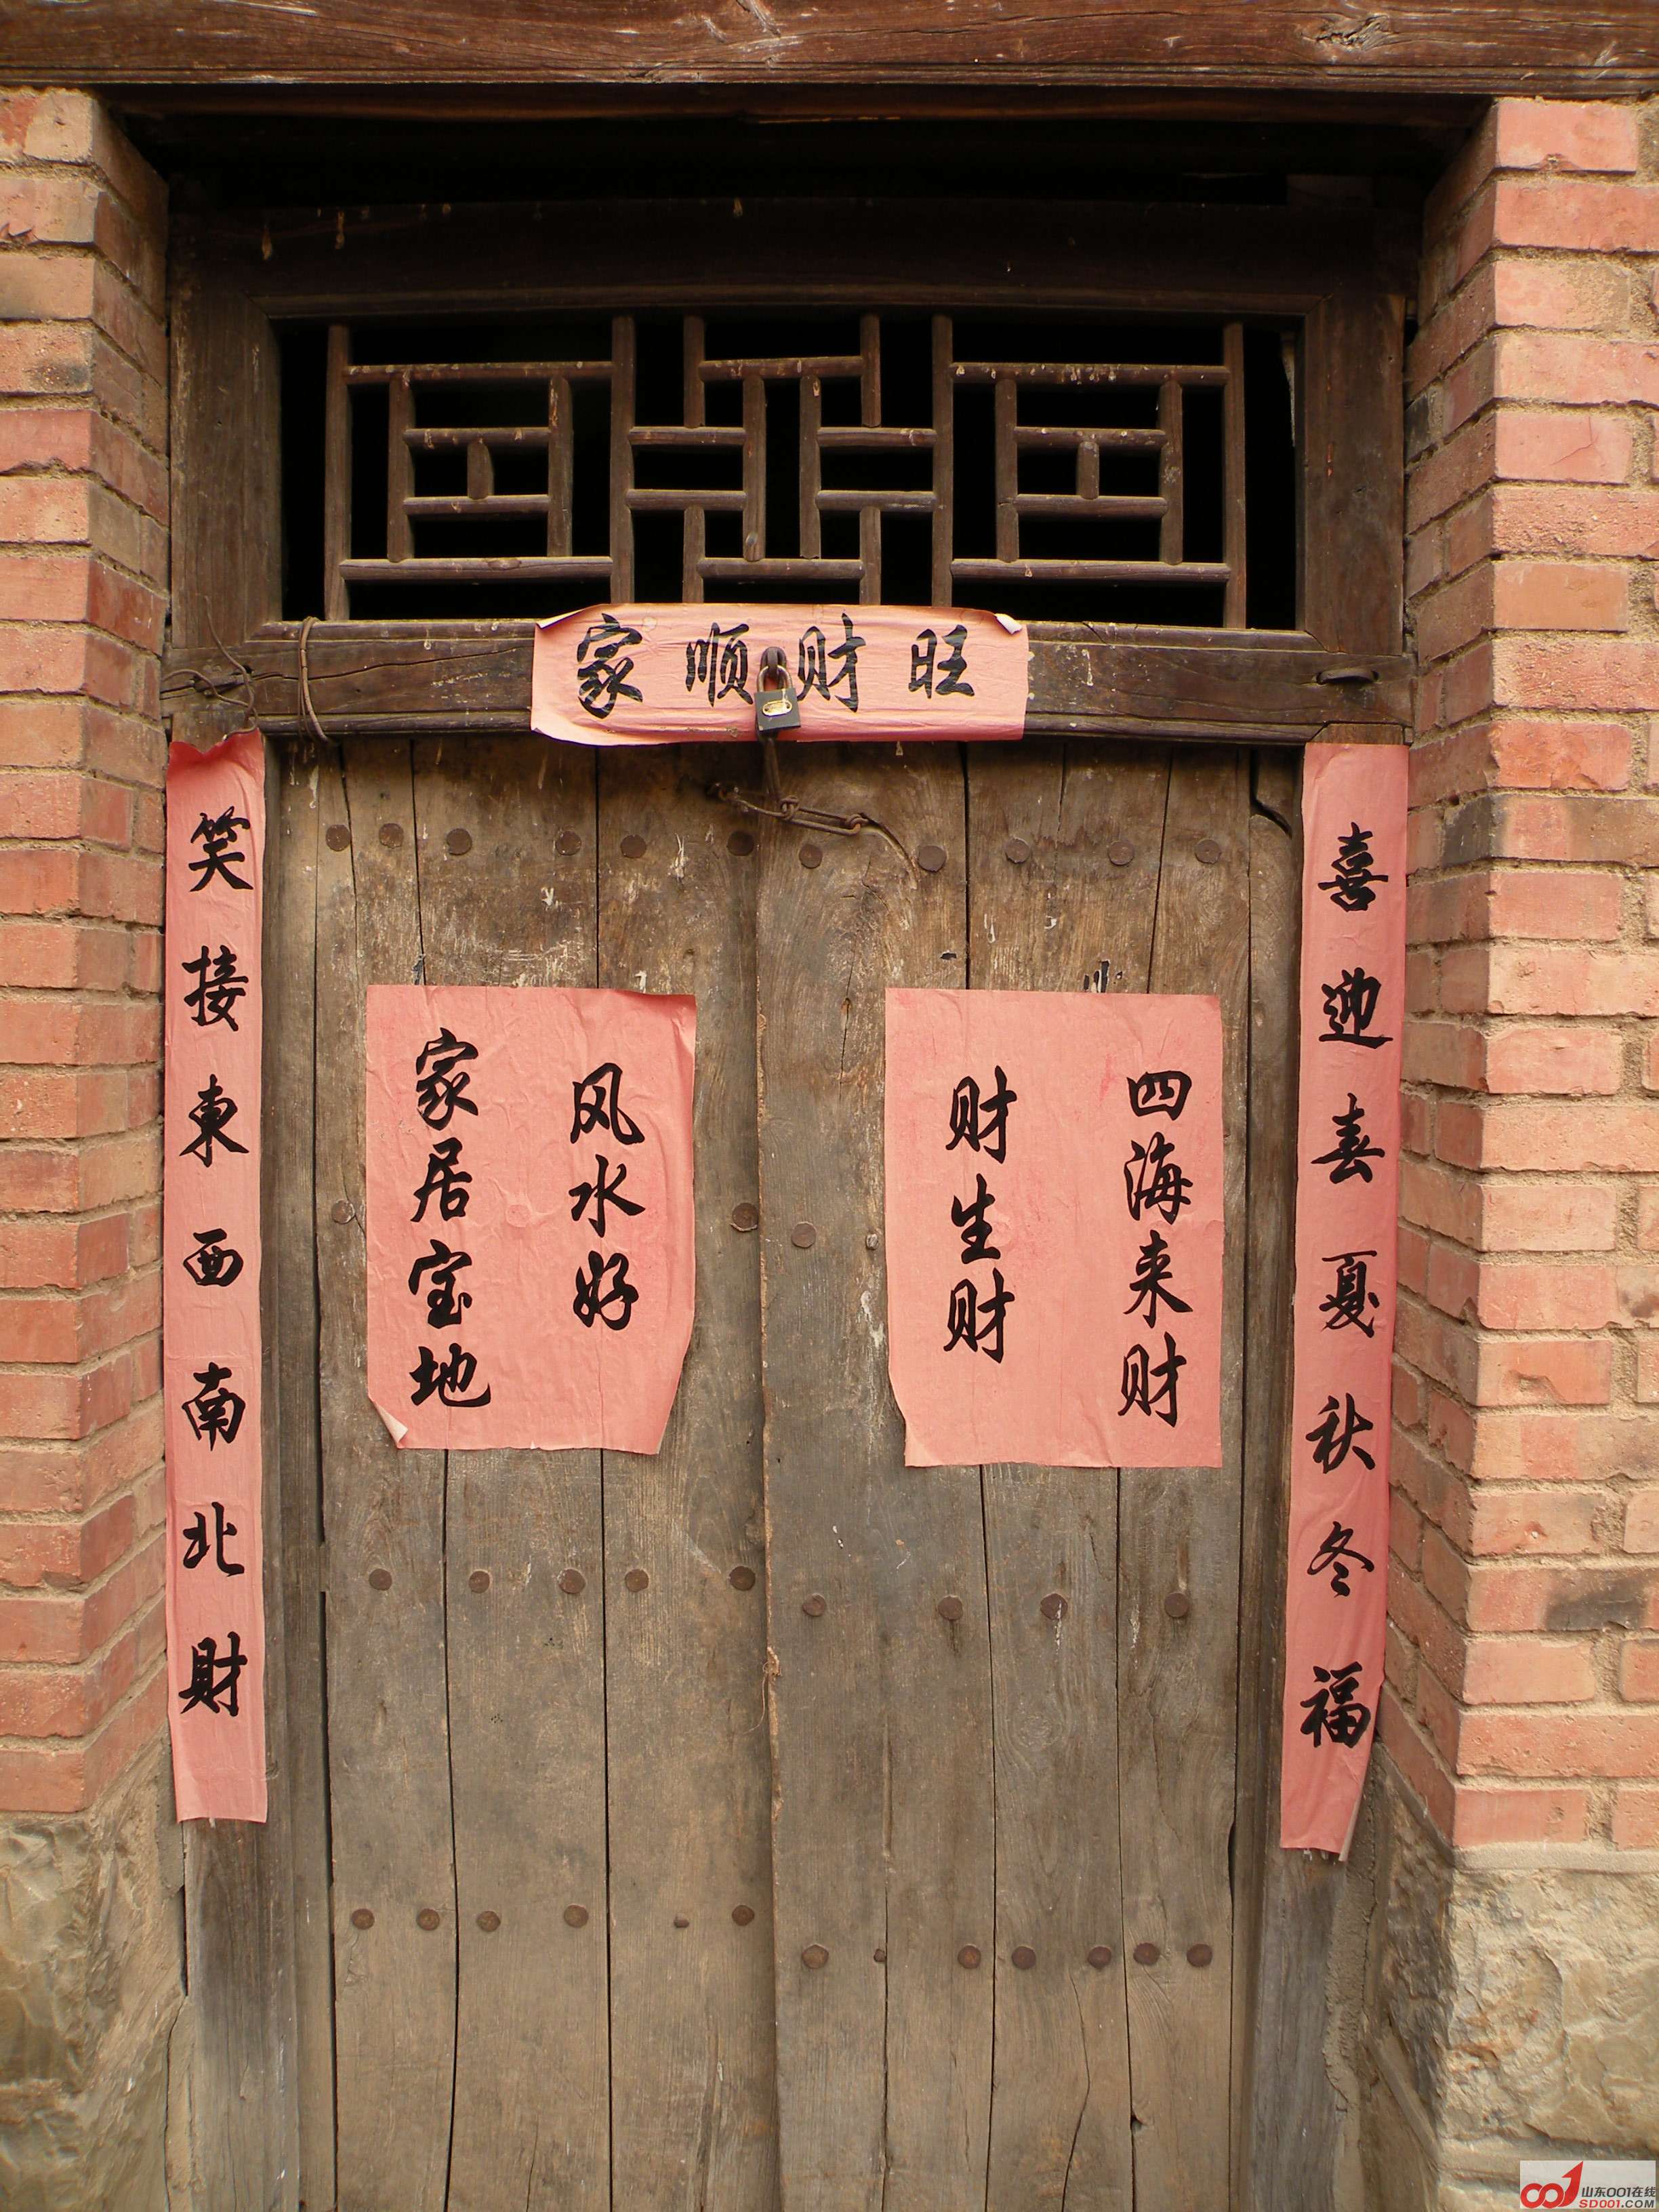 家顺财旺
喜迎春夏秋冬福
笑接東西南北財
四海来财
财生财
风水好
家居宝地
001山东001在线
SD001.COM